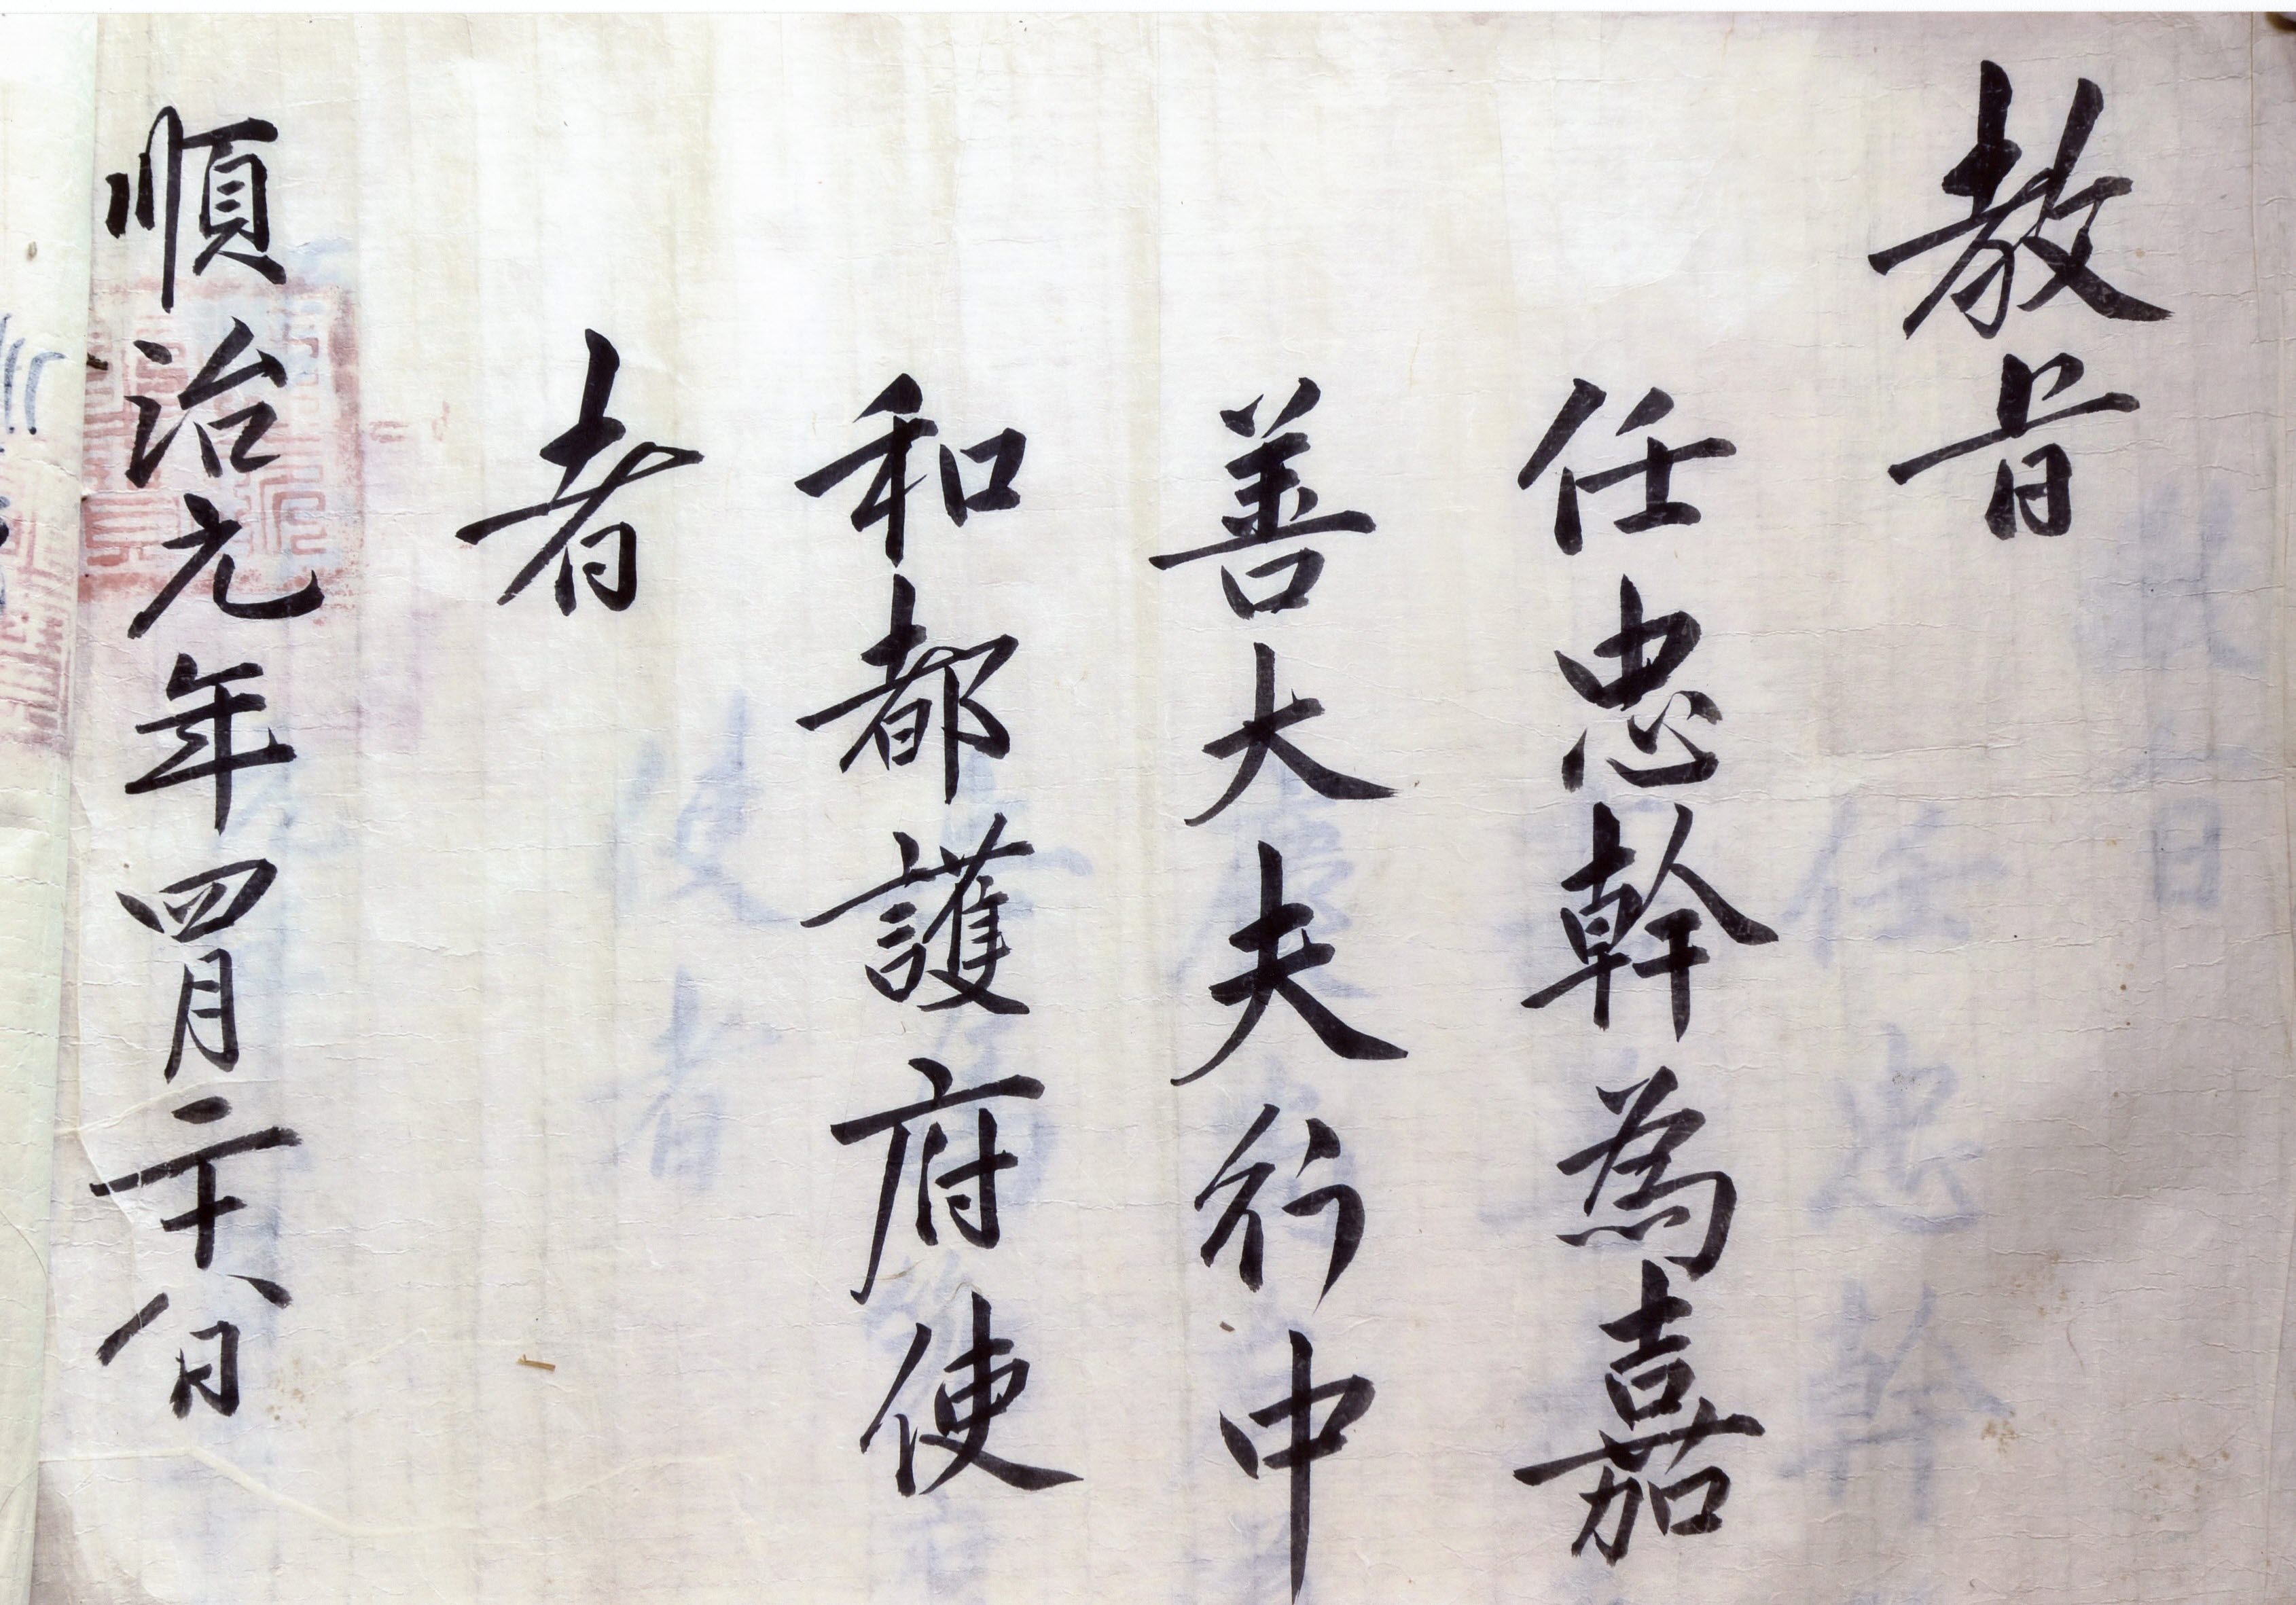 教旨
任忠幹為嘉
善大夫行中
和都護府使
者
順治元年四月二十八日